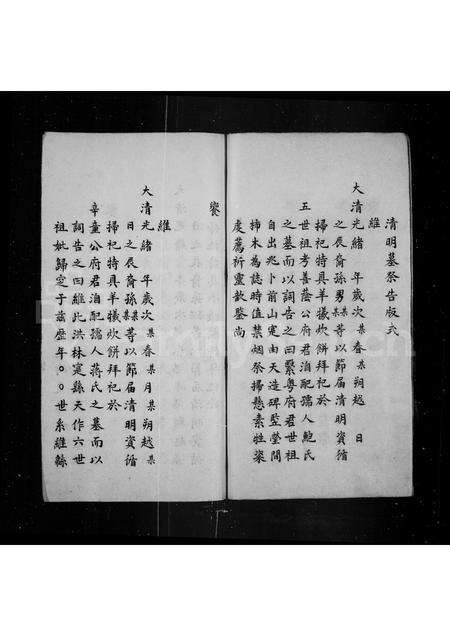 清明墓祭告版式
維
大清光緒 年歲次某春某朔越 日
之辰裔孫男某某等以節屆清明資循
掃祀特具羊犧炊餅拜祀於
五世祖考善蔭公府君洎配孺人鮑氏
之墓而以詞告之曰繫粵府君世祖
自出兆卜前山寔由天造碑豎塋間
柿木為誌時值禁烟祭掃懸素牲粢
虔薦祈靈歆鑒尚
饗
維
大清光緒 年歲次某春某月某朔越某
日之辰裔孫某某等以節屆清明資循
掃祀特具羊犧炊餅拜祀於
辛童公府君洎配孺人蔣氏之墓而以
詞告之曰維此洪林寔縣天作六世
祖妣歸定于茲歷年〇〇世系維緜